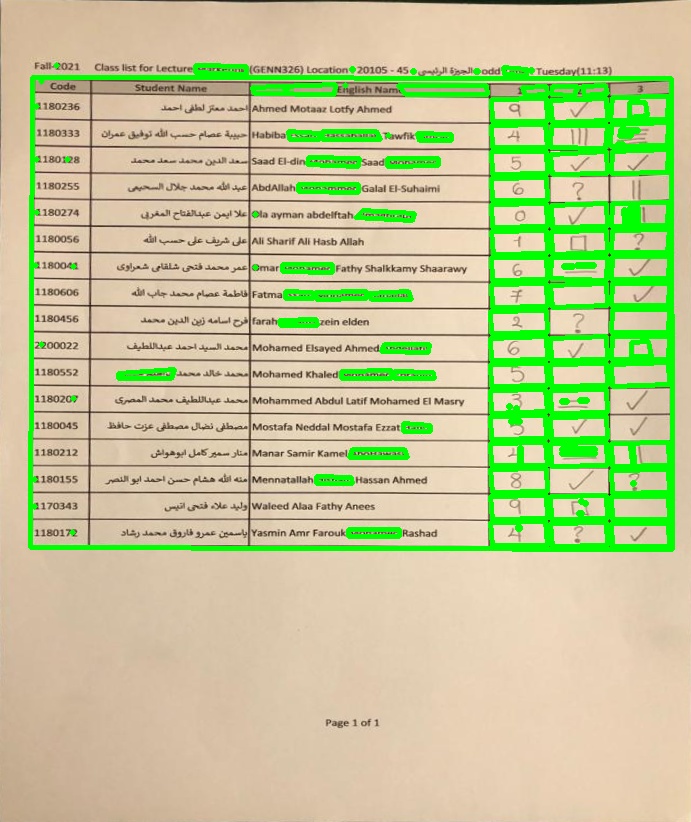 Fall-2021 Class list for Lecture (GENN326) Location 20105 - 45 الجيزة الرئيسي odd Tuesday(11:13)
Code Student Name English Name 1 2 3
1180236 احمد معتز لطفى احمد Ahmed Motaaz Lotfy Ahmed 9 ✓ □
1180333 حبيبة عصام حسب الله توفيق عمران Habiba Tawfik 4 |||
1180128 سعد الدين محمد سعد محمد Saad El-din Mohamed Saad Mohamed 5 ✓ ✓
1180255 عبد الله محمد جلال السحيمى AbdAllah Mohammed Galal El-Suhaimi 6 ? ||
1180274 علا ايمن عبدالفتاح المغربى Ola ayman abdelftah 0 ✓
1180056 على شريف على حسب الله Ali Sharif Ali Hasb Allah 1 □ ?
1180041 عمر محمد فتحى شلقامى شعراوى Omar Mohamed Fathy Shalkkamy Shaarawy 6 ✓
1180606 فاطمة عصام محمد جاب الله Fatma 7 ✓
1180456 فرح اسامه زين الدين محمد farah zein elden 2 ?
2200022 محمد السيد احمد عبداللطيف Mohamed Elsayed Ahmed 6 ✓ □
1180552 محمد خالد محمد Mohamed Khaled 5
1180207 محمد عبداللطيف محمد المصرى Mohammed Abdul Latif Mohamed El Masry 3 ✓
1180045 مصطفى نضال مصطفى عزت حافظ Mostafa Neddal Mostafa Ezzat ✓ ✓
1180212 منار سمير كامل ابوهواش Manar Samir Kamel ||
1180155 منه الله هشام حسن احمد ابو النصر Mennatallah Hassan Ahmed 8 ✓ ?
1170343 وليد علاء فتحى انيس Waleed Alaa Fathy Anees 9 □
1180172 ياسمين عمرو فاروق محمد رشاد Yasmin Amr Farouk Mohamed Rashad 4 ? ✓
Page 1 of 1